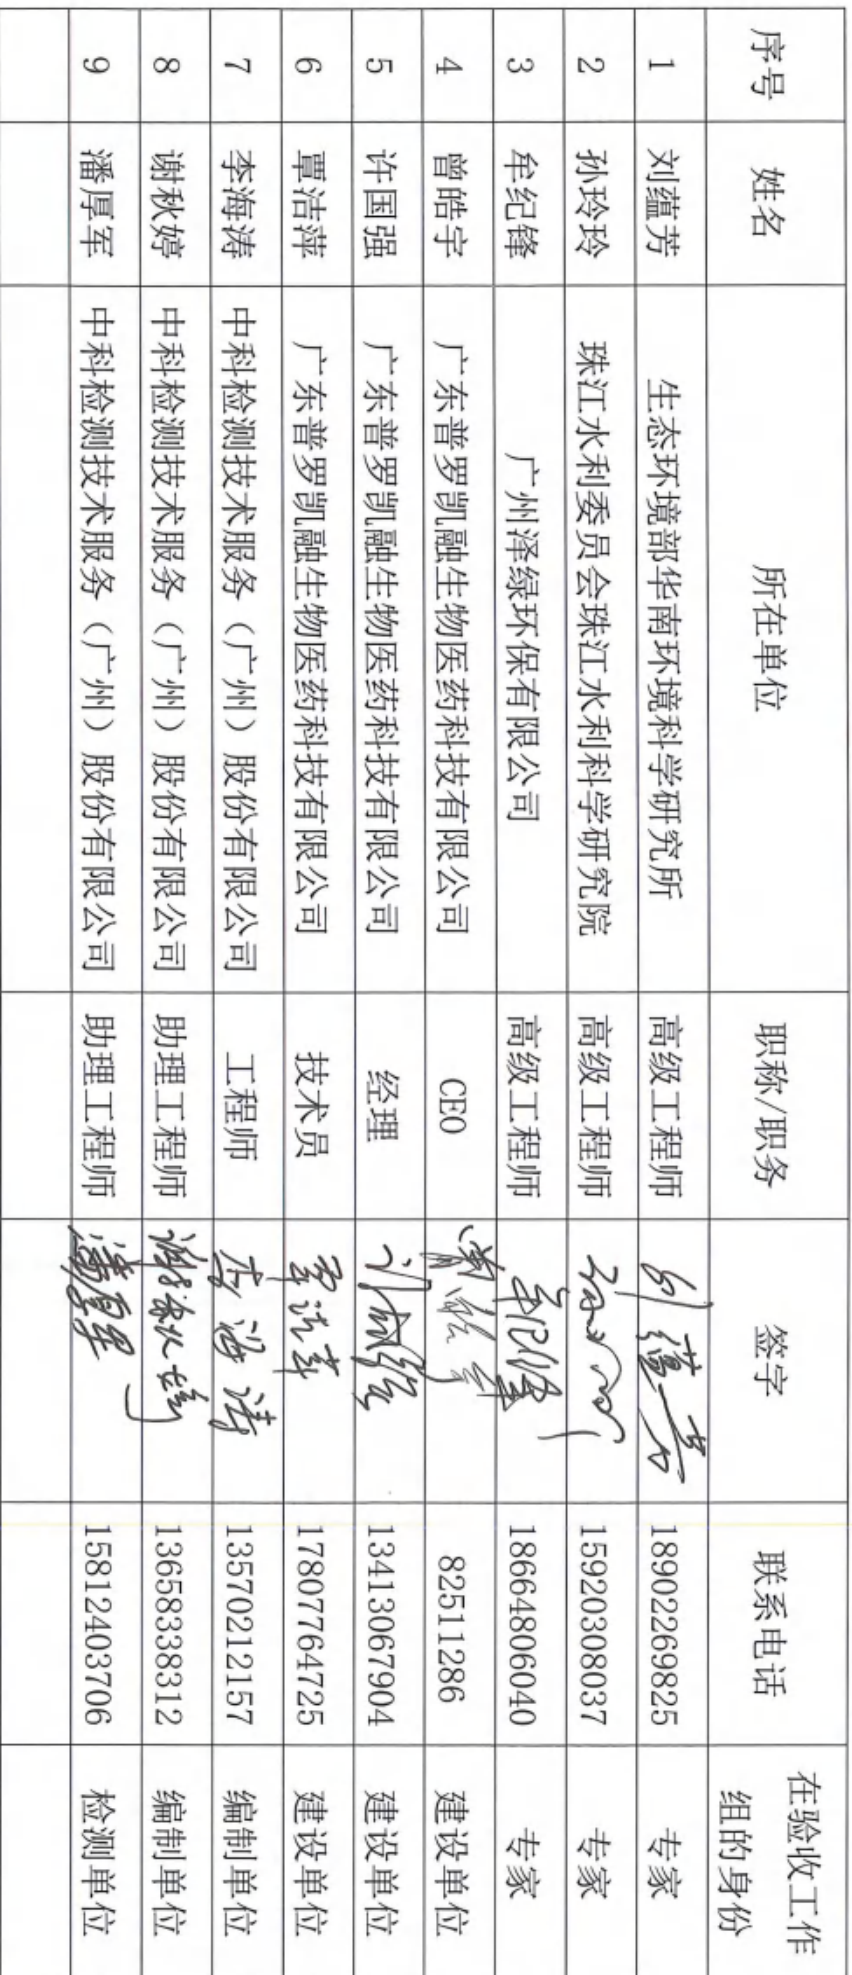 序号 姓名 所在单位 职称/职务 签字 联系电话 在验收工作
组的身份
1 刘蕴芳 生态环境部华南环境科学研究所 高级工程师 刘蕴芳 18902269825 专家
2 孙玲玲 珠江水利委员会珠江水利科学研究院 高级工程师 15920308037 专家
3 牟纪锋 广州泽绿环保有限公司 高级工程师 牟纪锋 18664806040 专家
4 曾皓宇 广东普罗凯融生物医药科技有限公司 CEO 曾皓宇 82511286 建设单位
5 许国强 广东普罗凯融生物医药科技有限公司 经理 许国强 13413067904 建设单位
6 覃洁萍 广东普罗凯融生物医药科技有限公司 技术员 覃洁萍 17807764725 建设单位
7 李海涛 中科检测技术服务（广州）股份有限公司 工程师 李海涛 13570212157 编制单位
8 谢秋婷 中科检测技术服务（广州）股份有限公司 助理工程师 谢秋婷 13658338312 编制单位
9 潘厚军 中科检测技术服务（广州）股份有限公司 助理工程师 潘厚军 15812403706 检测单位